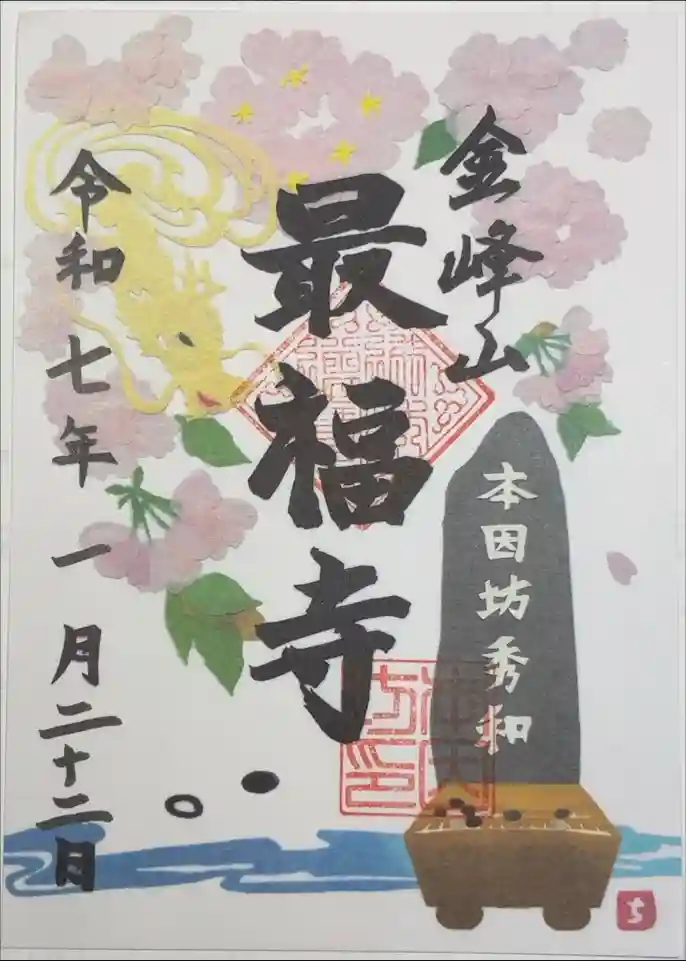 金峰山
最福寺
本因坊秀和
令和七年一月二十二日
ち